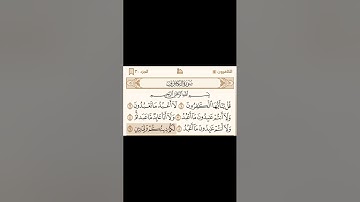 الكافرون
الجزء ٣٠
سورة الكافرون
بسم الله الرحمن الرحيم
قل يأيها الكفرون ١ لا أعبد ما تعبدون ٢
ولا أنتم عبدون ما أعبد ٣ ولا أنا عابد ما عبدتم ٤
ولا أنتم عبدون ما أعبد ٥ لكم دينكم ولي دين ٦